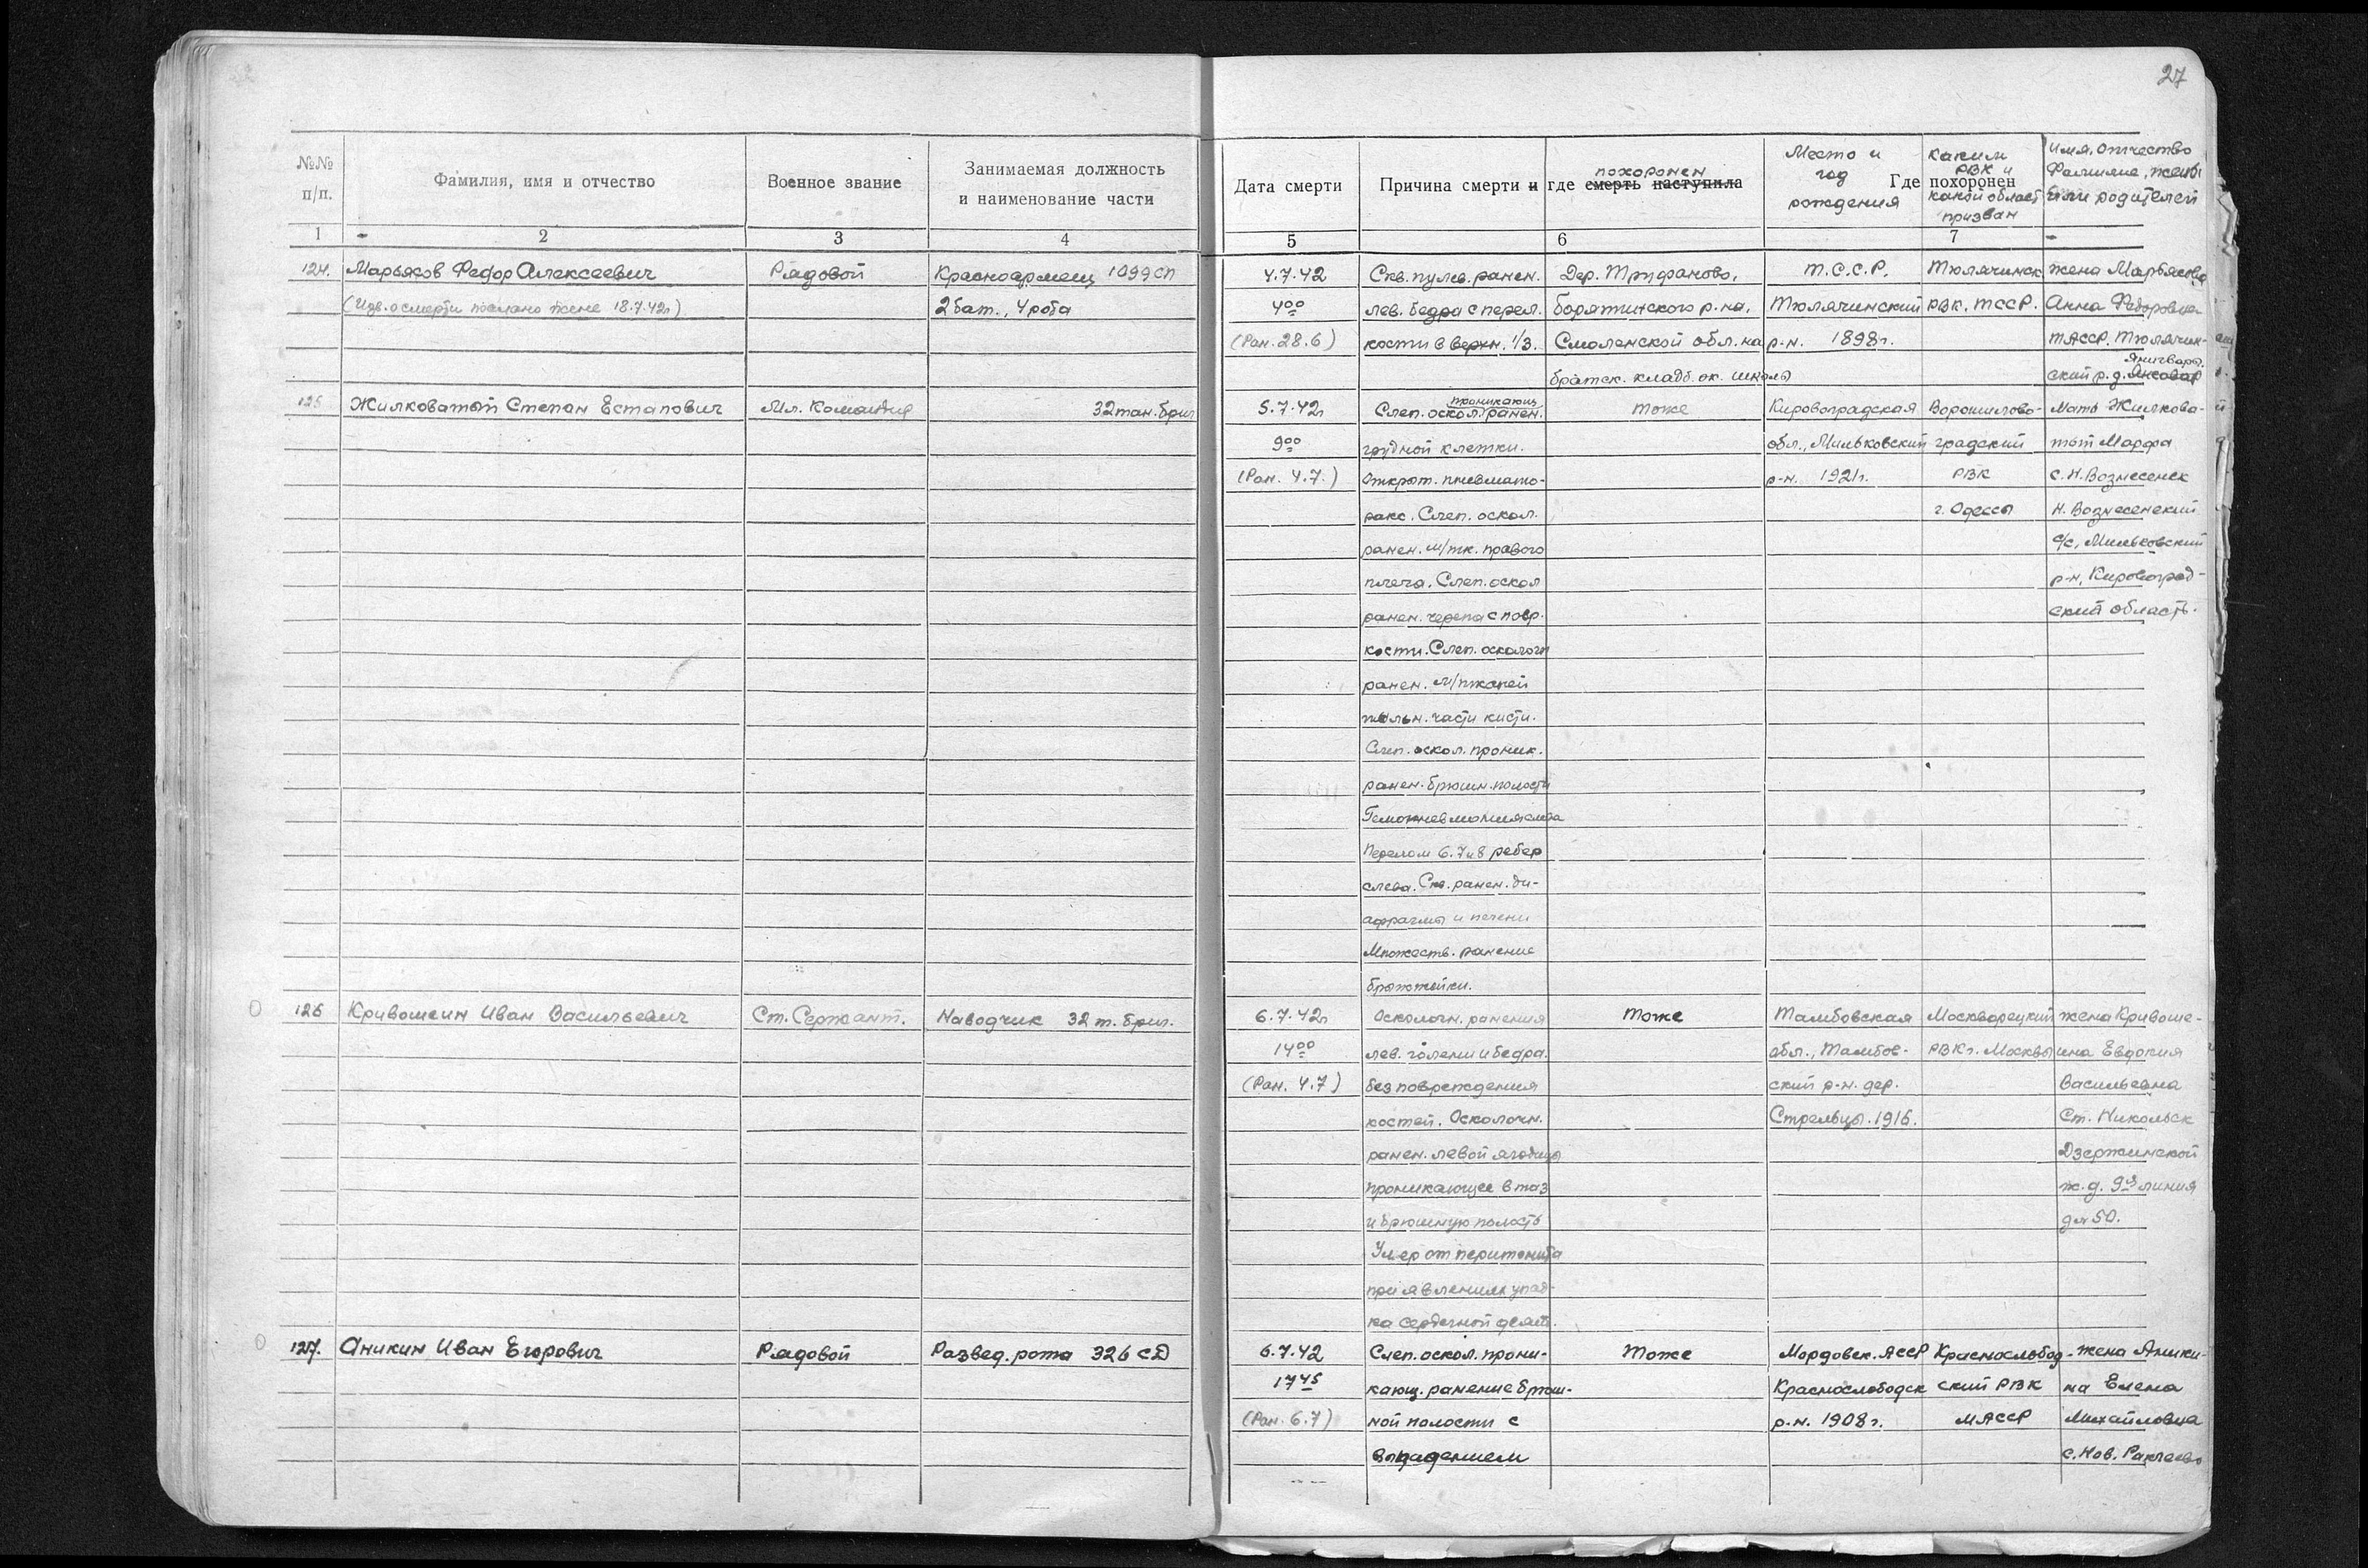 27
№№ п/п.
Фамилия, имя и отчество
Военное звание
Занимаемая должность и наименование части
Дата смерти
Причина смерти и где смерть наступила
похоронен
Где похоронен
Место и год рождения
Каким РВК и какой област призван
Имя, отчество Фамилие, жены или родителей
1 2 3 4 5 6 7
124. Марьясов Федор Алексеевич Рядовой Красноармеец 1099 сп 4.7.42 Скв. пулев. ранен. Дер. Труфаново, Т.С.С.Р. Тюлячинск жена Марьясова
(Изв. о смерти послано жене 18.7.42г) 2 бат., 4 рота 4 00 лев. бедра с перел. Барятинского р-на, Тюлячинский РВК, ТССР. Анна Федоровна
(Ран. 28.6) кости в верхн. 1/3. Смоленской обл. на р-н. 1898г. ТАССР, Тюлячин-
братск. кладб. ок. школы ский р. д.
125 Жилковатый Степан Естапович Мл. Командир 32 тан. бриг 5.7.42г Слеп. оскол. проникающ ранен. тоже Кировоградская Ворошилово- Мать Жилкова-
9 00 грудной клетки. обл., Мильковский градский тый Марфа
(Ран. 4.7.) Открыт. пневмато- р-н. 1921г. РВК с. Н. Вознесенск
ракс. Слеп. оскол. г. Одессы Н. Вознесенский
ранен. м/тк. правого с/с, Мильковский
плеча. Слеп. оскол р-н, Кировоград-
ранен. черепа с повр. ский область.
кости. Слеп. осколочн
ранен. м/тканей
тыльн. части кисти.
Слеп. оскол. проник.
ранен. брюшн. полости
Перелом 6. 7 и 8 ребер
слева. Скв. ранен. ди-
афрагмы и печени
Множеств. ранение
брыжейки.
126 Кривошеин Иван Васильевич Ст. Сержант. Наводчик 32 т. бриг. 6.7.42г Осколочн. ранения Тоже Тамбовская Москворецкий жена Кривоше-
14 00 лев. голени и бедра. обл., Тамбов- РВК г. Москвы ина Евдокия
(Ран. 4.7) без повреждения ский р-н. дер. Васильевна
костей. Осколочн. Стрельцы. 1916. Ст. Никольск
ранен. левой ягодицы Дзержинской
проникающее в таз ж.д. 9 я линия
и брюшную полость д. 50.
Умер от перитонита
при явлениях упад-
ка сердечной деят.
127. Аникин Иван Егорович Рядовой Развед. рота 326 СД 6.7.42 Слеп. оскол. прони- Тоже Мордовск. АССР Краснослобод- жена Аники-
17 45 кающ. ранение брюш- Краснослободск ский РВК на Елена
(Ран. 6.7) ной полости с р-н. 1908г. МАССР Михайловна
выпадением с. Нов.